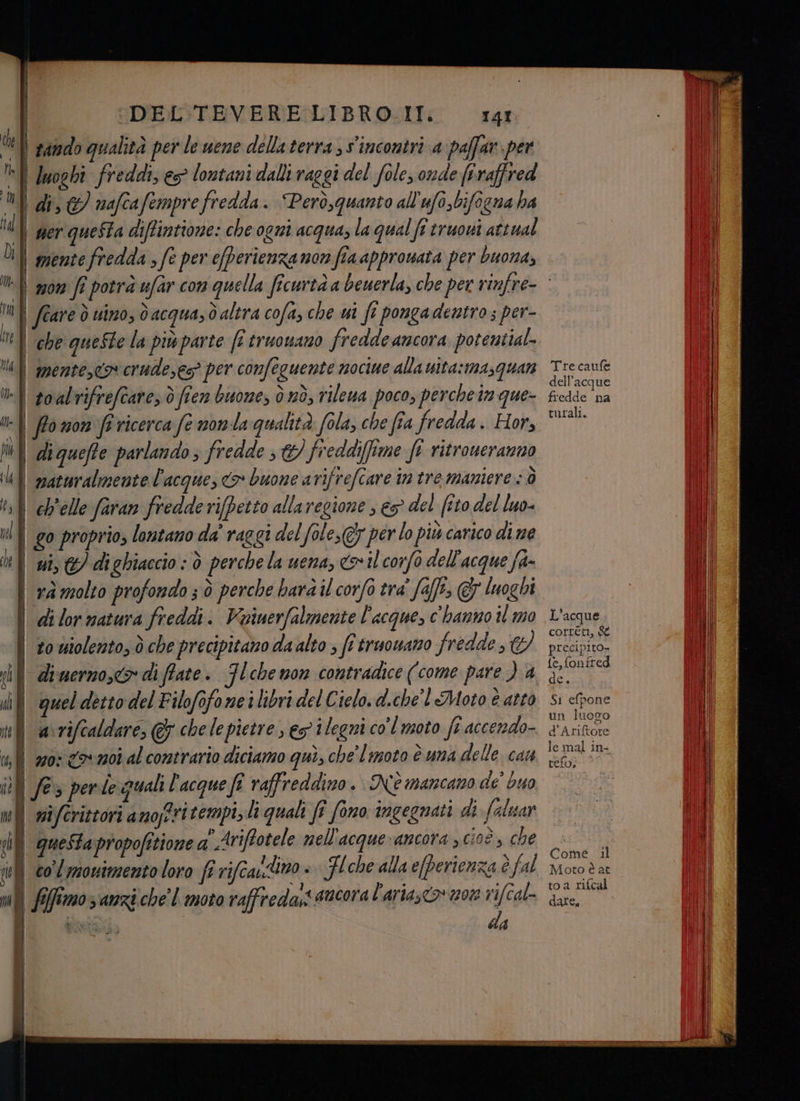 DEL TEVERE LIBRO II. 141
tando qualità per le uene della terra, s'incontri a paſſar per
luoghi freddi, & lontani dalli raggi del ſole, onde ſi raffred
di, & naſca ſempre fredda. Però, quanto all'uſo, biſogna ha
uer queſta diſtintione: che ogni acqua, la qual ſi truoui attual
mente fredda, ſe per eſperienza non ſia approuata per buona,
non ſi potrà uſar con quella ſicurtà a beuerla, che per rinfre-
ſcare ò uino, ò acqua, ò altra coſa, che ui ſi ponga dentro; per-
che queſte la più parte ſi truouano fredde ancora potential-
mente, & crude, & per conſeguente nociue alla uita: ma, quan
to al rifreſcare, ò ſien buone, ò nò, rileua poco, perche in que-
ſto non ſi ricerca ſe non la qualità ſola, che ſia fredda. Hor,
di queſte parlando, fredde, & freddiſſime ſi ritroueranno
naturalmente l'acque, & buone a rifreſcare in tre maniere: ò
ch'elle ſaran fredde riſpetto alla regione, & del ſito del luo-
go proprio, lontano da' raggi del ſole, & per lo più carico di ne
ui, & di ghiaccio: ò perche la uena, & il corſo dell'acque ſa-
rà molto profondo; ò perche harà il corſo tra' ſaſſi, & luoghi
di lor natura freddi. Vniuerſalmente l'acque, c'hanno il mo
to uiolento, ò che precipitano da alto, ſi truouano fredde, &
di uerno, & di ſtate. Ilche non contradice (come pare) a
quel detto del Filoſofo ne i libri del Cielo. d. che'l Moto è atto
a riſcaldare, & che le pietre, & i legni co'l moto ſi accendo-
no: & noi al contrario diciamo quì, che'l moto è una delle cau
ſe, per le quali l'acque ſi raffreddino. Nè mancano de' buo
ni ſcrittori a noſtri tempi, li quali ſi ſono ingegnati di ſaluar
queſta propoſitione d'Ariſtotele nell'acque ancora, cioè, che
co'l mouimento loro ſi riſcaldino. Ilche alla eſperienza è fal
ſiſſimo, anzi che'l moto raffredda ancora l'aria, & non riſcal-
da
Tre cauſe
dell'acque
fredde na
turali.
L'acque
corrēti, &
precipito-
ſe, ſon fred
de.
Si eſpone
un luogo
d'Ariſtote
le mal in-
teſo,
Come il
Moto è at
to a riſcal
dare.